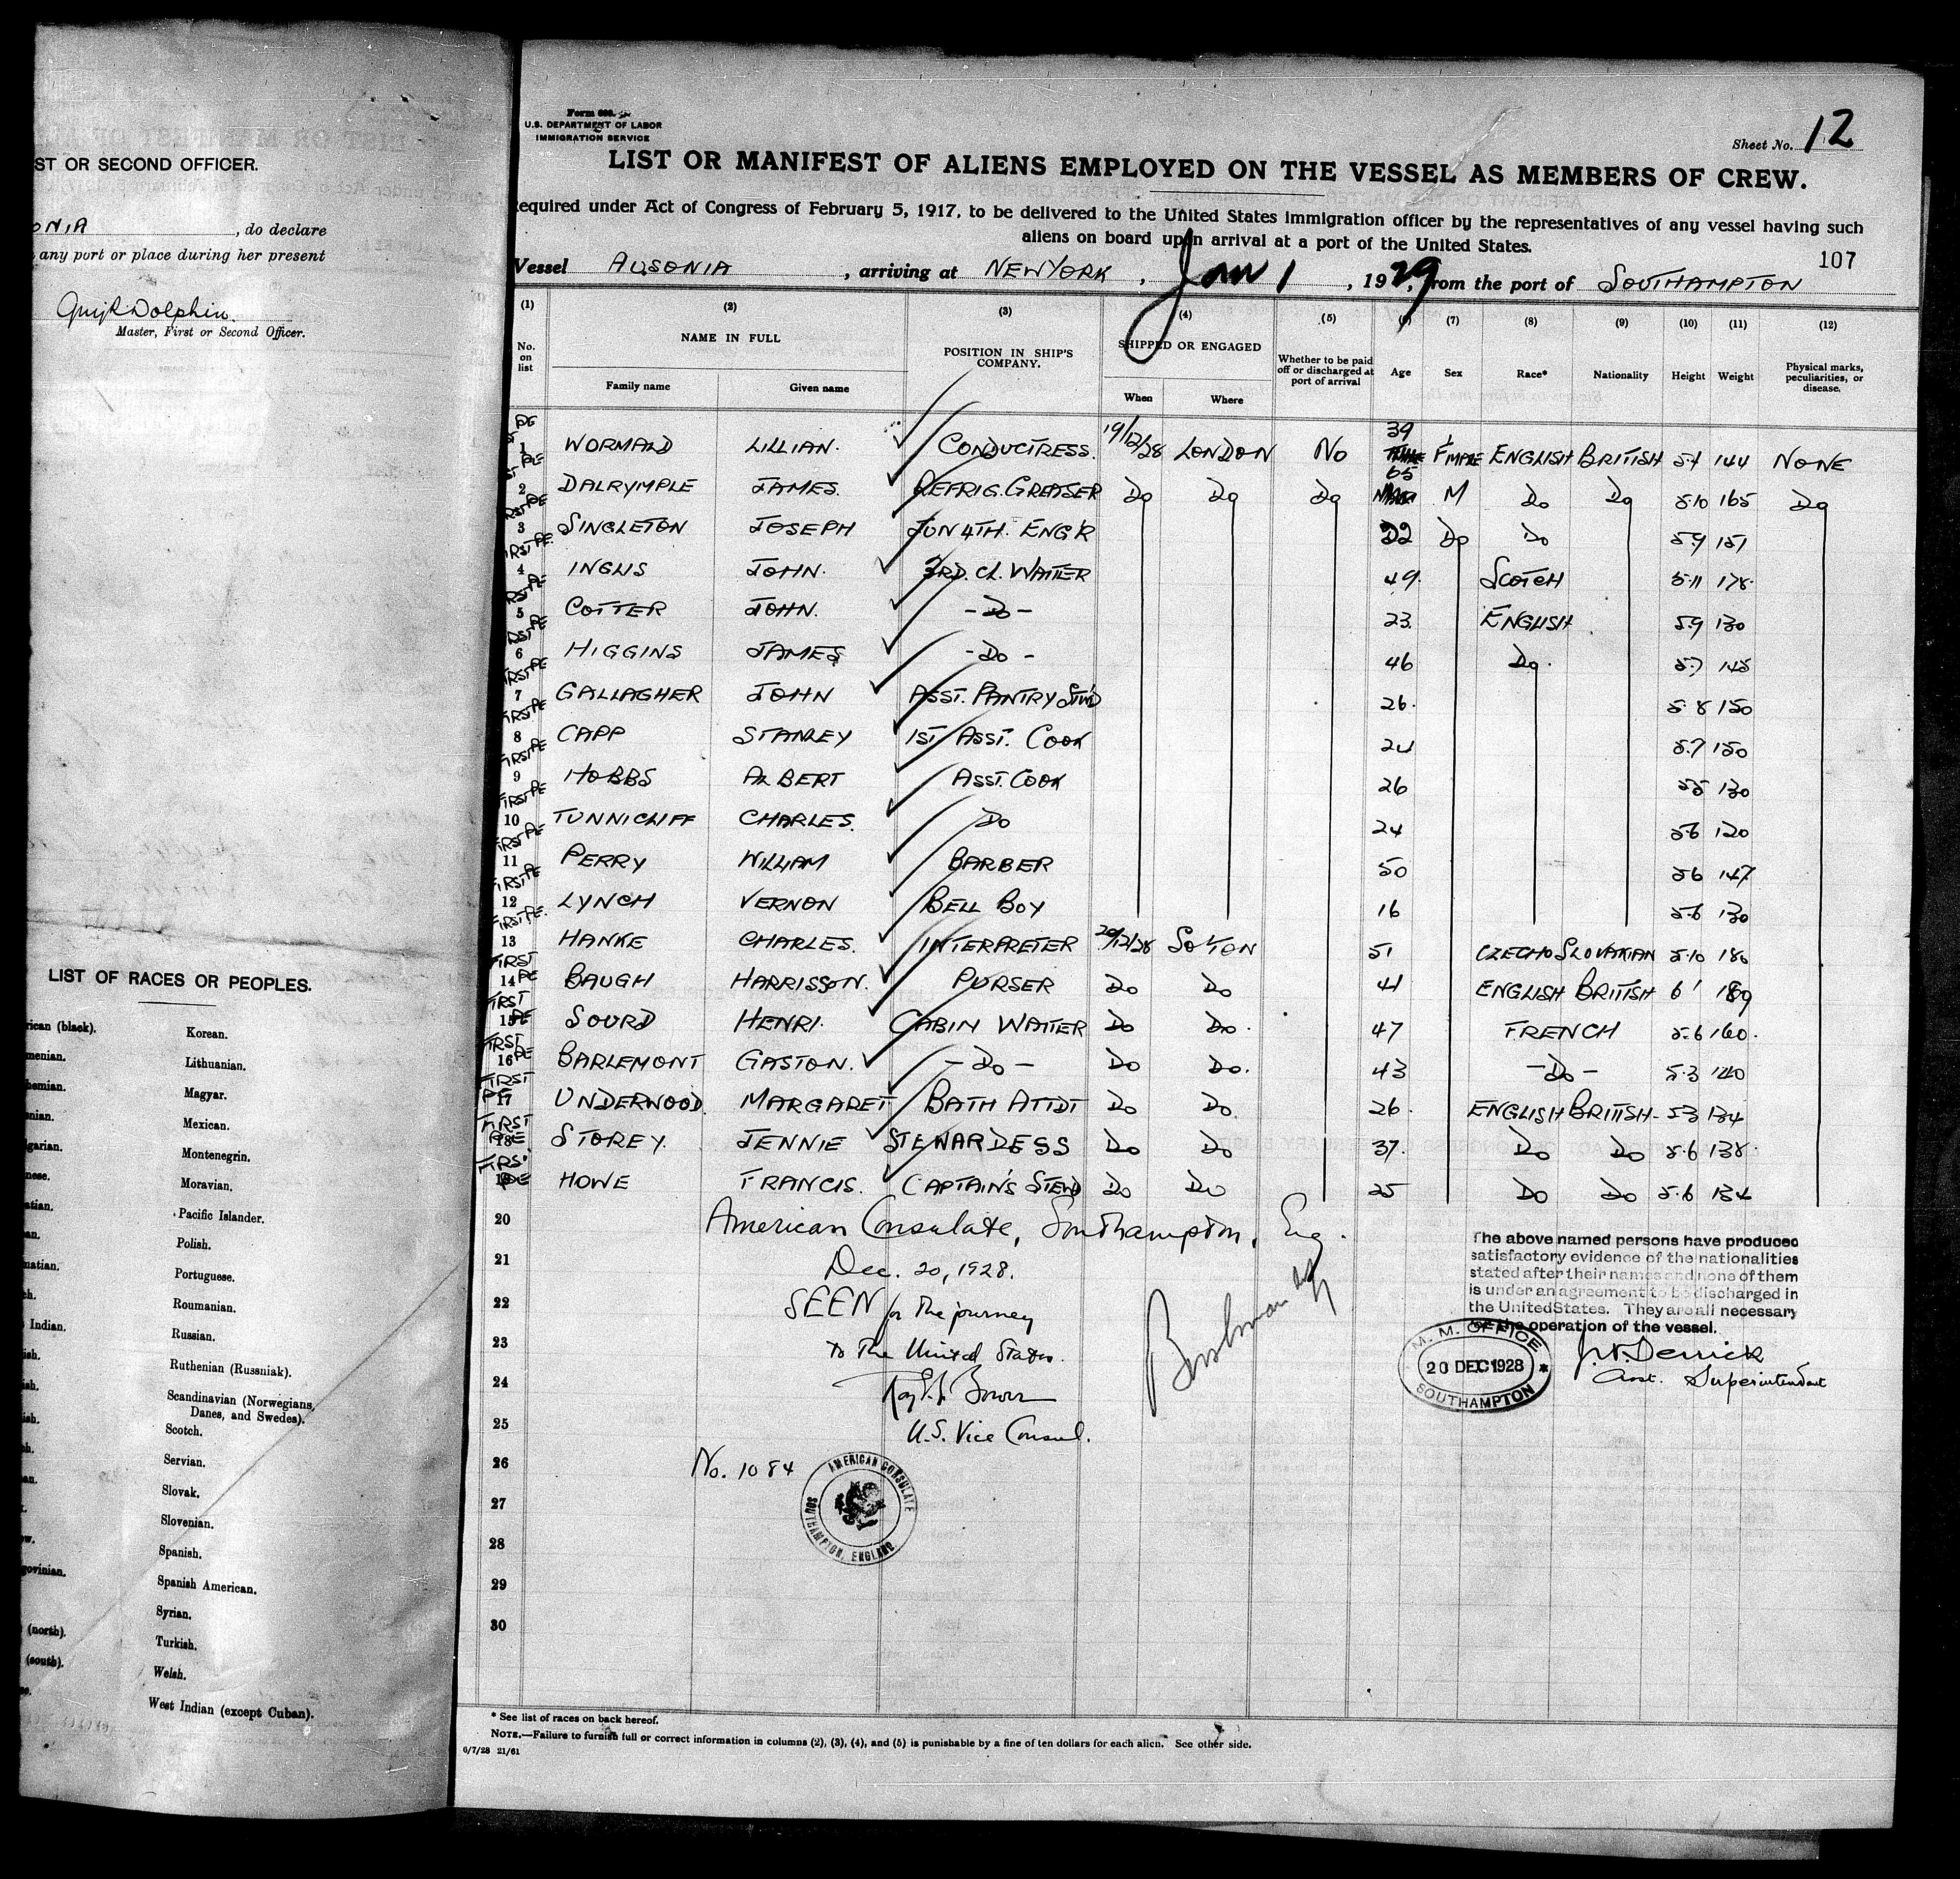 ST OR SECOND OFFICER.
ONIA, do declare
any port or place during her present
Dolphin.
Master, First or Second Officer.
LIST OF RACES OR PEOPLES.
rican (black). Korean.
menian. Lithuanian.
hemian. Magyar.
nian. Mexican.
lgarian. Montenegrin.
nese. Moravian.
atian. Pacific Islander.
an. Polish.
matian. Portuguese.
ch. Roumanian.
Indian. Russian.
ish. Ruthenian (Russniak).
ish. Scandinavian (Norwegians,
Danes, and Swedes).
ish. Scotch.
ch. Servian.
an. Slovak.
k. Slovenian.
ew. Spanish.
govinian. Spanish American.
Syrian.
(north). Turkish.
(south). Welsh.
se. West Indian (except Cuban).
Form 680.
U.S. DEPARTMENT OF LABOR
IMMIGRATION SERVICE
Sheet No. 12
LIST OR MANIFEST OF ALIENS EMPLOYED ON THE VESSEL AS MEMBERS OF CREW.
equired under Act of Congress of February 5, 1917, to be delivered to the United States immigration officer by the representatives of any vessel having such
aliens on board upon arrival at a port of the United States.
107
Vessel AUSONIA, arriving at NEW YORK, Jan 1, 1929, from the port of SOUTHAMPTON
(1) (2) (3) (4) (5) (6) (7) (8) (9) (10) (11) (12)
No. on list NAME IN FULL POSITION IN SHIP'S COMPANY. SHIPPED OR ENGAGED Whether to be paid off or discharged at port of arrival Age Sex Race* Nationality Height Weight Physical marks, peculiarities, or disease.
Family name Given name When Where
1 WORMALD LILLIAN. CONDUCTRESS. 19/12/28 LONDON No 39 F ENGLISH BRITISH 5.4 144 NONE
2 DALRYMPLE JAMES. REFRIG. GREASER Do Do Do 65 M Do Do 5.10 165 Do
3 SINGLETON JOSEPH JUN 4TH. ENG'R 22 Do Do 5.9 151
4 INGLIS JOHN. 3RD. CL. WAITER 49. SCOTCH 5.11 178.
5 COTTER JOHN. - Do - 23. ENGLISH 5.9 130
6 HIGGINS JAMES - Do - 46 Do. 5.7 145
7 GALLAGHER JOHN ASST. PANTRY STW'D 26. 5.8 150
8 CAPP STANLEY 1ST ASST. COOK 24 5.7 150
9 HOBBS ALBERT ASST. COOK 26 5.5 130
10 TUNNICLIFF CHARLES. Do 24 5.6 120
11 PERRY WILLIAM BARBER 50 5.6 147
12 LYNCH VERNON BELL BOY 16 5.6 130
13 HANKE CHARLES. INTERPRETER 20/12/28 SO'TON 51 CZECHOSLOVAKIAN 5.10 180
14 BAUGH HARRISSON. PURSER Do Do 41 ENGLISH BRITISH 6' 189
15 SOURD HENRI. CABIN WAITER Do Do. 47 FRENCH 5.6 160.
16 BARLEMONT GASTON. - Do - Do Do. 43 - Do - 5.3 140
17 UNDERWOOD. MARGARET BATH ATTDT Do Do. 26. ENGLISH BRITISH- 5.3 134
18 STOREY. JENNIE STEWARDESS Do Do 37. Do Do 5.6 138.
19 HOWE FRANCIS. CAPTAIN'S STEWD Do Do 25 Do Do 5.6 134
20 American Consulate, Southampton, Eng.
21 Dec. 20, 1928.
22 SEEN for the journey
23 to the United States.
24
25 U.S. Vice Consul.
26 No. 1084
27
28
29
30
AMERICAN CONSULATE
SOUTHAMPTON, ENGLAND
The above named persons have produced
satisfactory evidence of the nationalities
stated after their names and none of them
is under an agreement to be discharged in
the United States. They are all necessary
for the operation of the vessel.
M. M. OFFICE
20 DEC 1928
SOUTHAMPTON
Derrick
Asst. Superintendent
* See list of races on back hereof.
NOTE.—Failure to furnish full or correct information in columns (2), (3), (4), and (5) is punishable by a fine of ten dollars for each alien. See other side.
6/7/28 21/61